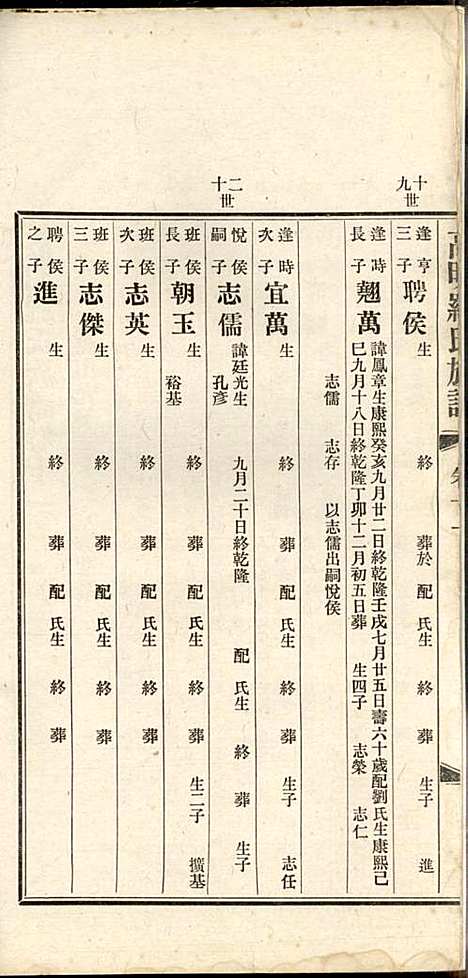 氏族譜
十九世
逢亨三子 聘侯 生 終 葬於 配 氏生 終 葬 生子 進
逢時長子 翹萬 諱鳳章生康熙癸亥九月廿二日終乾隆壬戌七月廿五日壽六十歲配劉氏生康熙己
巳九月十八日終乾隆丁卯十二月初五日葬 生四子 志榮 志仁
志儒 志存 以志儒出嗣悅侯
逢時次子 宜萬 生 終 葬 配 氏生 終 葬 生子 志任
二十世
悅侯嗣子 志儒 諱廷光生 九月二十日終乾隆 配 氏生 終 葬 生子
孔彥
班侯長子 朝玉 生 終 葬 配 氏生 終 葬 生二子 擴基
裕基
班侯次子 志英 生 終 葬 配 氏生 終 葬
班侯三子 志傑 生 終 葬 配 氏生 終 葬
聘侯之子 進 生 終 葬 配 氏生 終 葬